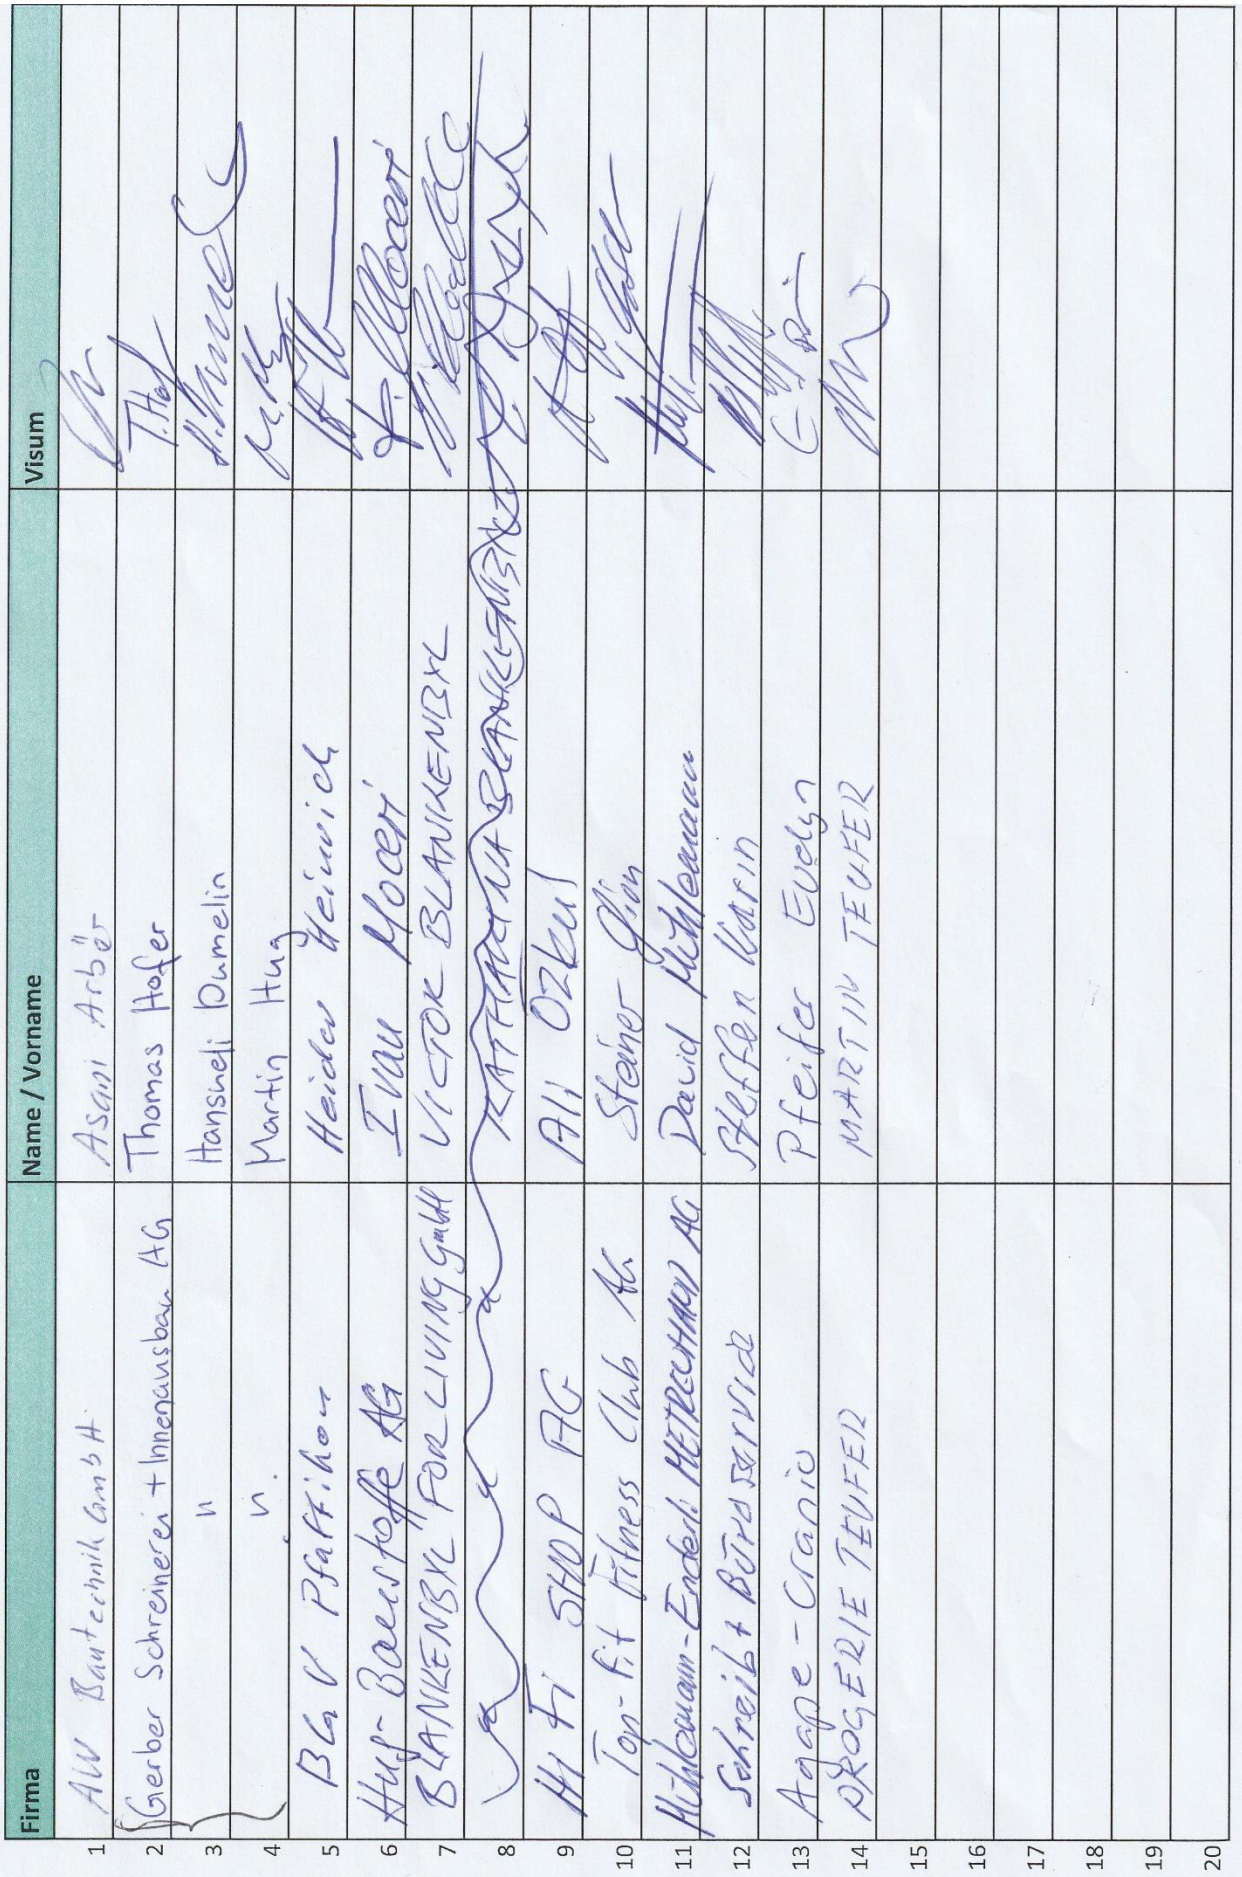 Firma Name / Vorname Visum
1 AW Bautechnik GmbH Asani Arbër
2 Gerber Schreinerei + Innenausbau AG Thomas Hofer T.Hof
3 " Hansueli Dumelin
4 " Martin Hug
5 BGV Pfäffikon Heider Heinrich
6 Hug-Baustoffe AG Ivan Moceri
7 BLANKENBYL FOR LIVING GmbH VICTOR BLANKENBYL
8 KATHARINA BLANKENBYL
9 HI FI SHOP AG Ali OZkul
10 Top-Fit Fitness Club AG Steiner Gian
11 Mühlemann-Enderli METRECHARD AG David Mühlemann
12 Schreibt Büroservice Steffen Karin
13 Agape-Cranio Pfeifer Evelyn
14 DROGERIE TEUFER MARTIN TEUFER
15
16
17
18
19
20